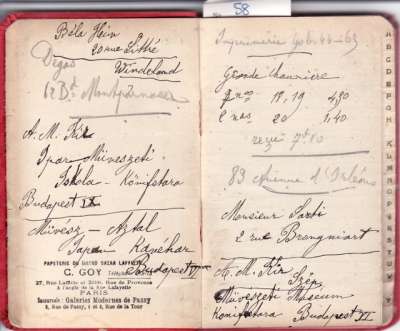 58
Béla Hein
20 rue Littré
Windeland
Degas
12 Bd Montparnasse
A. M. Kir
Ipar Művészeti
Iskola - Könyvtara
Budapest IX
Művész - Asztal
Japan Kávéház
Budapest
PAPETERIE DU GRAND BAZAR LAFFITTE
C. GOY
27, Rue Laffitte et 20bis, Rue de Provence
à l'angle de la Rue Lafayette
PARIS
Succursale : Galeries Modernes de Passy
8, Rue de Passy, 1 et 3, Rue de la Tour
Imprimerie Gob. 44-63
Grande Chaumière
18, 19 4,50
20 1,40
83 Avenue d'Orléans
Monsieur
2 rue Brongniart
A. M. Kir
Szép
Művészeti Múzeum
Könyvtara Budapest VI
A
B
C
D
E
F
G
H